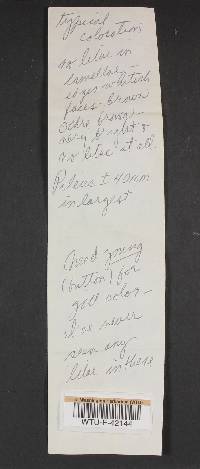 typical
coloration
no lilac in
lamellae -
edges whitish
faces - brown
Ochre brown -
very bright &
no lilac at all.
Pileus ± 40mm
in largest
Need young
(button) for
gill color -
I've never
seen any
lilac in these
WTU-F-42144